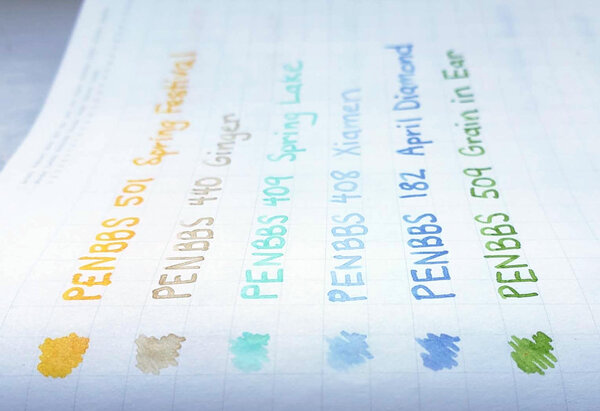 PENBBS 501 Spring Festival
PENBBS 440 Ginger
PENBBS 409 Spring Lake
PENBBS 408 Xiamen
PENBBS 182 April Diamond
PENBBS 509 Grain in Ear